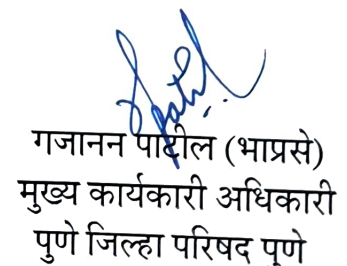 गजानन पाटील (भाप्रसे)
मुख्य कार्यकारी अधिकारी
पुणे जिल्हा परिषद पुणे